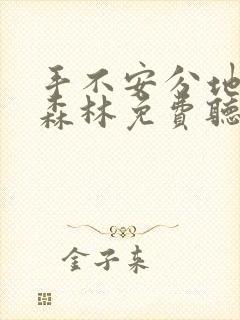 手不安分地
森林免费聽
金子来